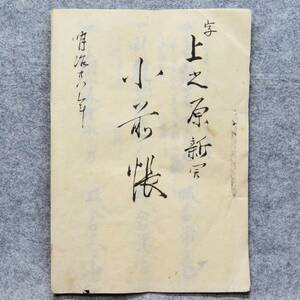 字
上之原新開
小前帳
明治十八年